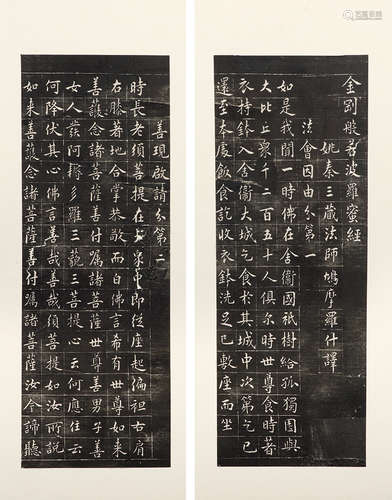 金剛般若波羅蜜經
姚秦三藏法師鳩摩羅什譯
法會因由分第一
如是我聞一時佛在舍衞國祇樹給孤獨園與
大比丘衆千二百五十人俱尔時世尊食時著
衣持鉢入舍衞大城乞食於其城中次第乞已
還至本處飯食訖收衣鉢洗足已敷座而坐
善現啟請分第二
時長老須菩提在大衆中即從座起徧袒右肩
右膝著地合掌恭敬而白佛言希有世尊如来
善護念諸菩薩善付囑諸菩薩世尊善男子善
女人發阿耨多羅三藐三菩提心云何應住云
何降伏其心佛言善哉善哉須菩提如汝所說
如来善護念諸菩薩善付囑諸菩薩汝今諦聽